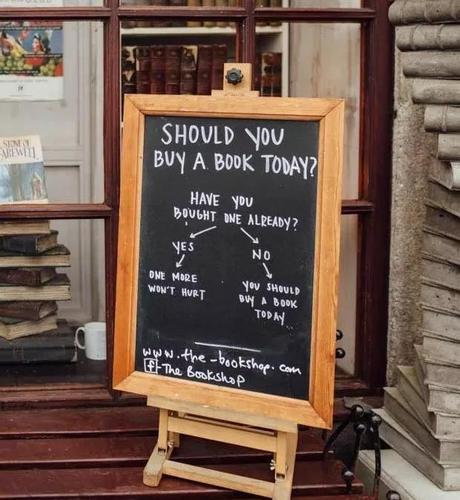 SHOULD YOU
BUY A BOOK TODAY?
HAVE YOU
BOUGHT ONE ALREADY?
YES
NO
ONE MORE
WON'T HURT
YOU SHOULD
BUY A BOOK
TODAY
www.the-bookshop.com
f-The Bookshop
FAREWELL